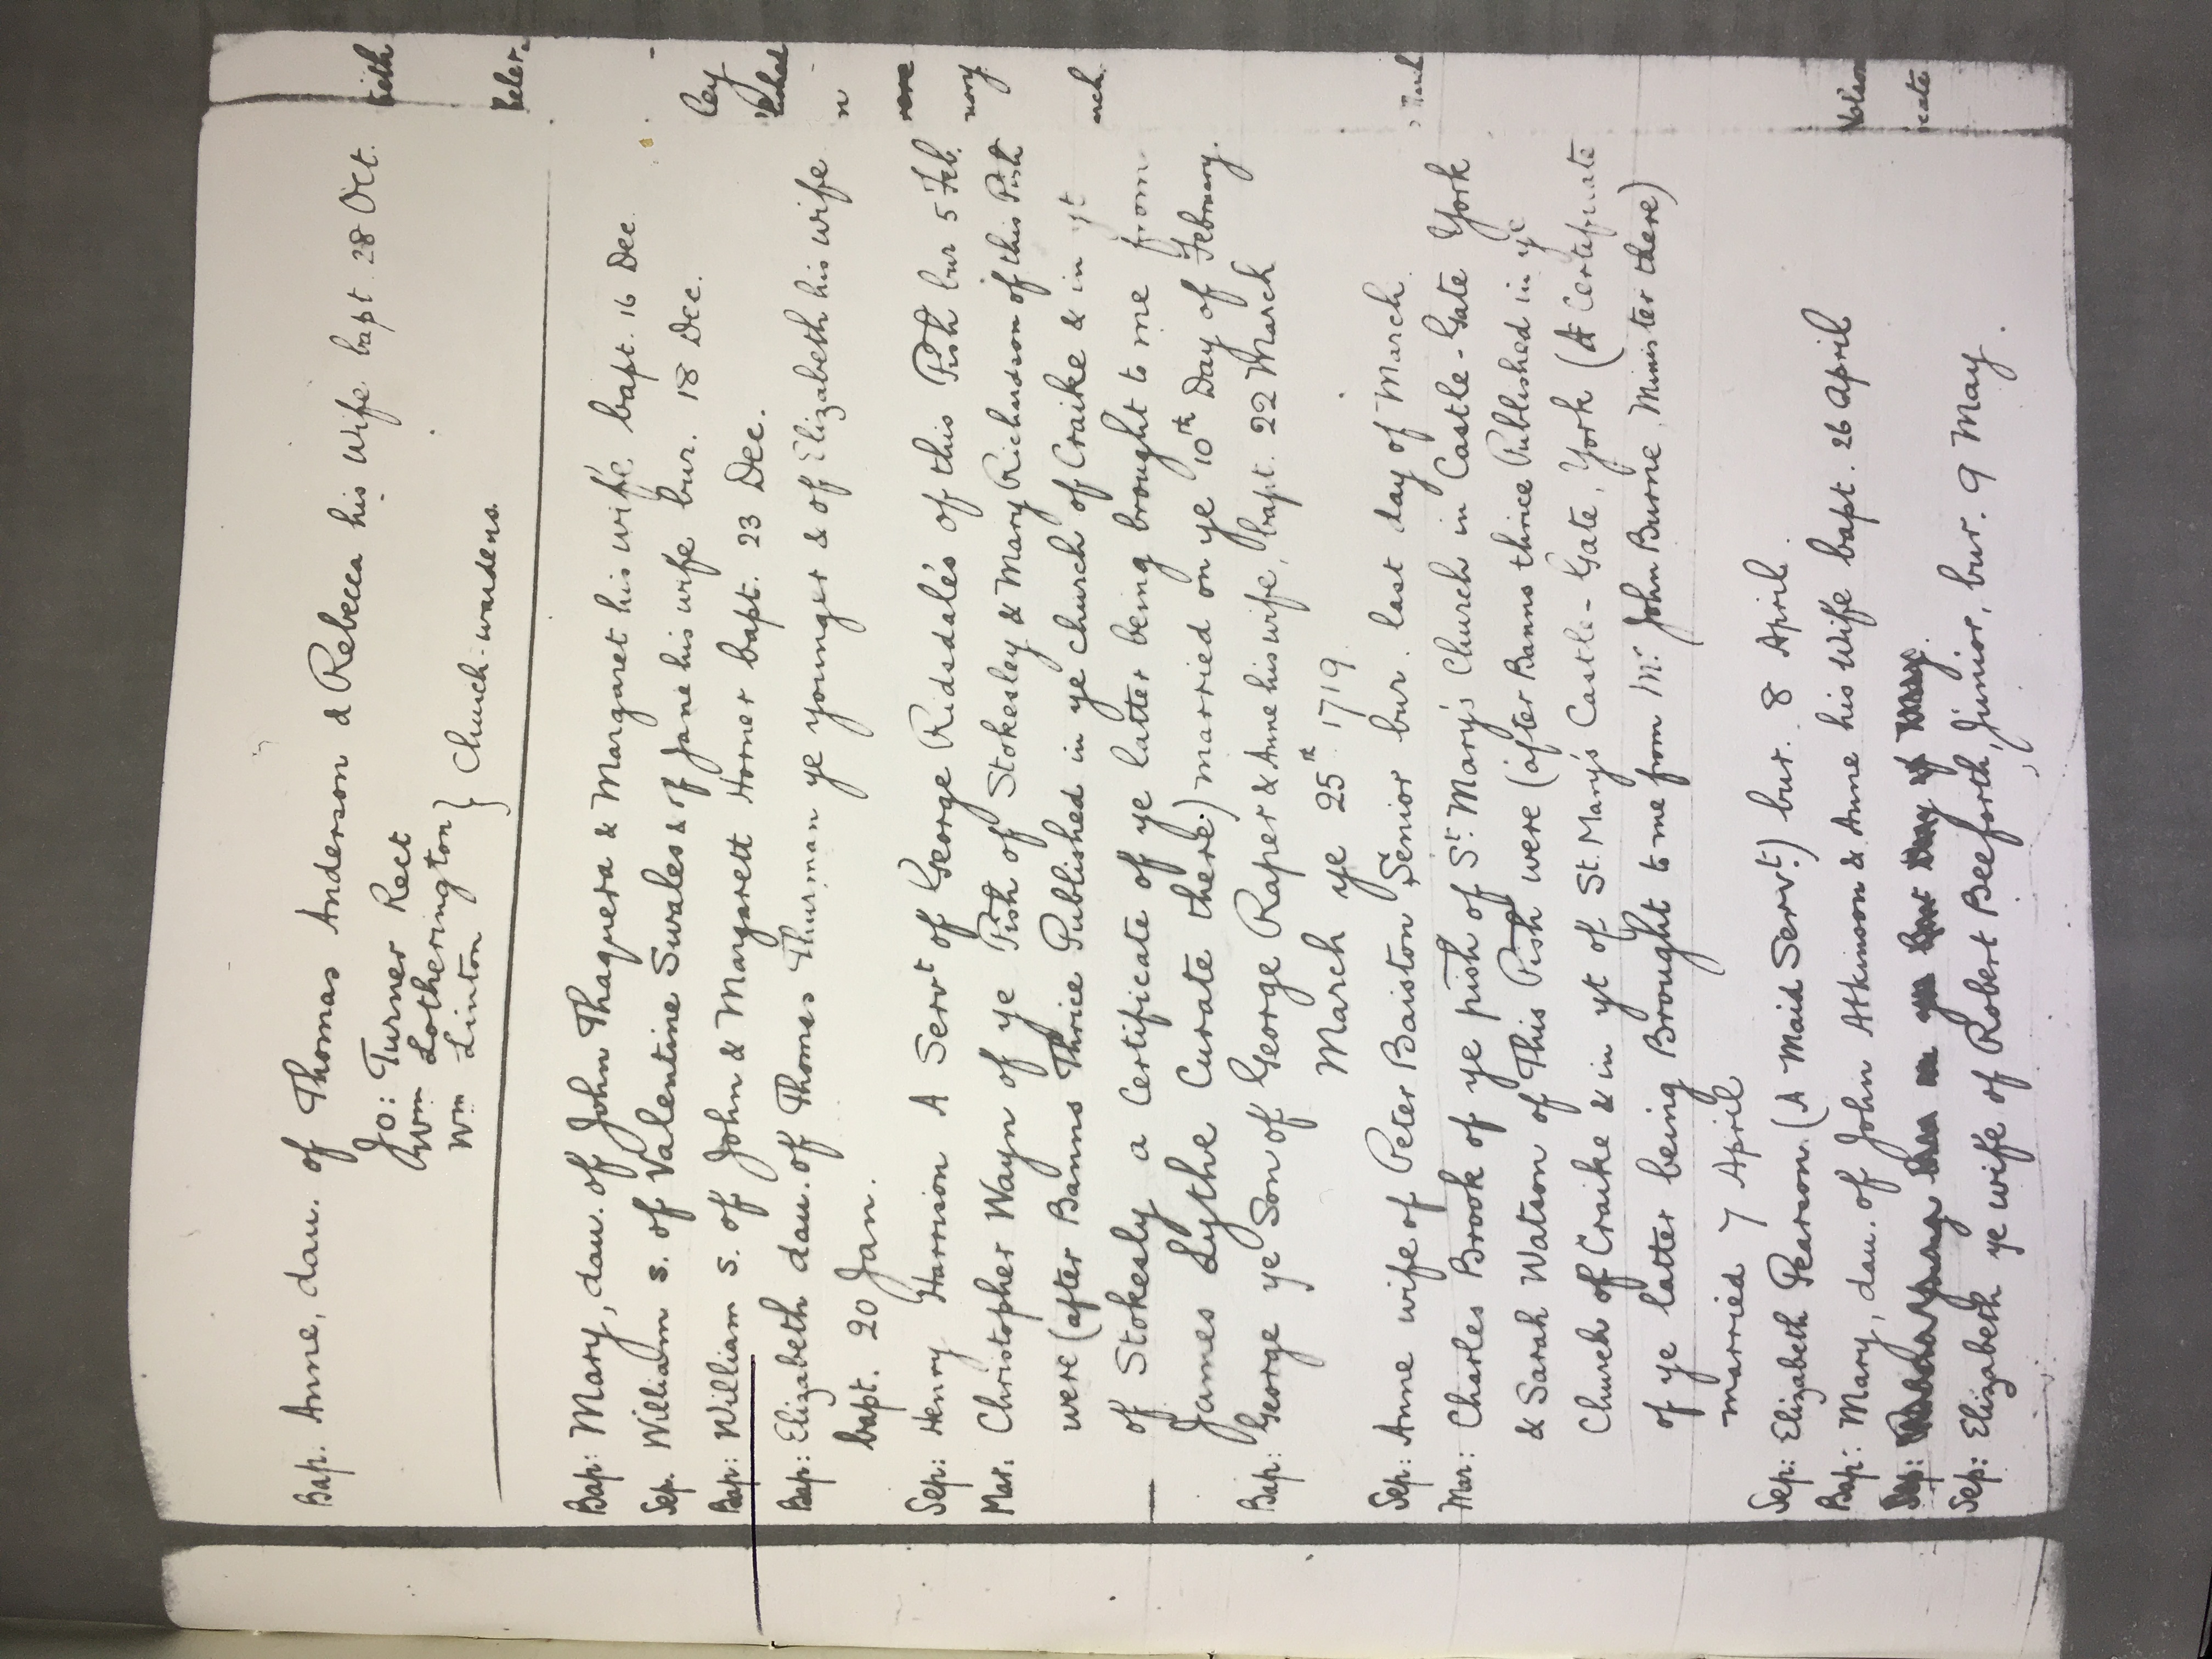 Bap. Anne, dau. of Thomas Anderson & Rebecca his wife bapt. 28 Oct.
Jo: Turner Rect
Wm Lotherington } Church-wardens.
Wm Linton
Bap: Mary, dau. of John Thaquera & Margaret his wife, bapt. 16 Dec.
Sep. William s. of Valentine Swales & of Jane his wife bur. 18 Dec.
Bap: William s. of John & Margarett Horner bapt. 23 Dec.
Bap: Elizabeth dau. of Thomas Thurman ye younger & of Elizabeth his wife
bapt. 20 Jan.
Sep: Henry Harrison A Servt of George Ridsdale's of this Pish bur 5 Feb.
Mar: Christopher Wayn of ye Pish of Stokesley & Mary Richardson of this Pish
were (after Banns Thrice Published in ye church of Craike & in yt
of Stokesly a Certificate of ye latter being brought to me from
James Lythe Curate there) married on ye 10th Day of February.
Bap: George ye Son of George Raper & Anne his wife, bapt. 22 March
March ye 25th 1719.
Sep: Anne wife of Peter Baiston Senior bur. last day of March
Mar: Charles Brook of ye pish of St. Mary's Church in Castle-Gate York
& Sarah Watson of This Pish were (after Banns thrice Published in ye
Church of Craike & in yt of St. Mary's Castle-Gate, York (A Certificate
of ye latter being Brought to me from Mr. John Burne, Minister there)
married 7 April
Sep: Elizabeth Pearson (A Maid Servt.) bur. 8 April.
Bap: Mary, dau. of John Atkinson & Anne his Wife bapt. 26 April
Sep: Elizabeth ye wife of Robert Beeforth, Junior, bur. 9 May.